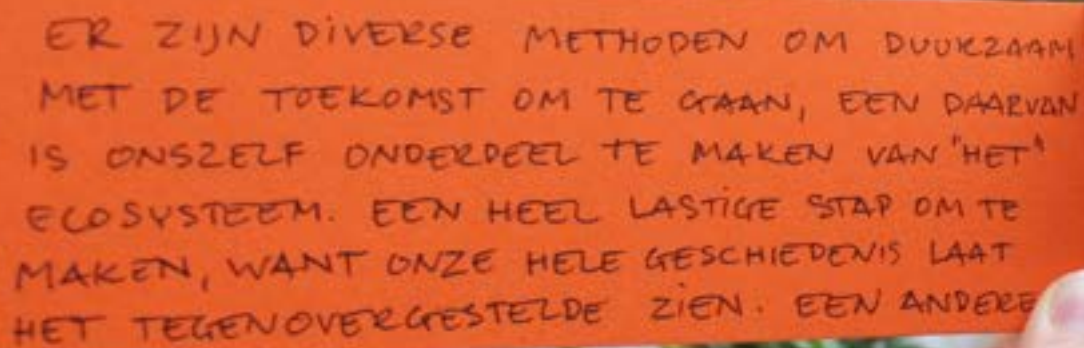 ER ZIJN DIVERSE METHODEN OM DUURZAAM
MET DE TOEKOMST OM TE GAAN, EEN DAARVAN
IS ONSZELF ONDERDEEL TE MAKEN VAN "HET"
ECOSYSTEEM. EEN HEEL LASTIGE STAP OM TE
MAKEN, WANT ONZE HELE GESCHIEDENIS LAAT
HET TEGENOVERGESTELDE ZIEN. EEN ANDERE